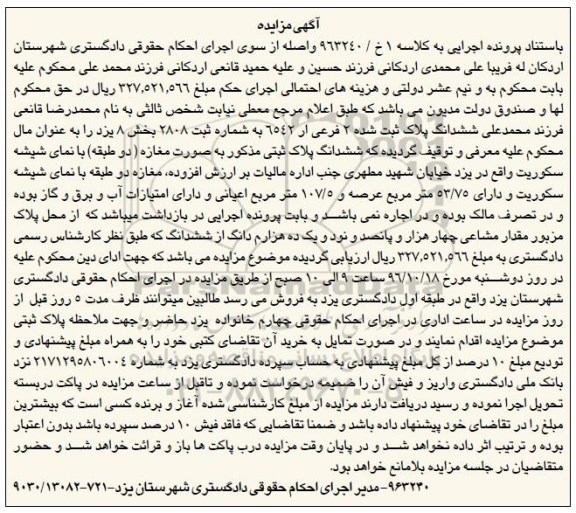 آگهی مزایده
باستناد پرونده اجرایی به کلاسه ۱ خ / ۹۶۳۲۴۰ واصله از سوی اجرای احکام حقوقی دادگستری شهرستان
اردکان له فریبا علی محمدی اردکانی فرزند حسین و علیه حمید قانعی اردکانی فرزند محمد علی محکوم علیه
بابت محکوم به و نیم عشر دولتی و هزینه های احتمالی اجرای حکم مبلغ ۳۲۷,۵۲۱,۵۶۶ ریال در حق محکوم
لها و صندوق دولت مدیون می باشد که طبق اعلام مرجع معطی نیابت شخص ثالثی به نام محمدرضا قانعی
فرزند محمدعلی ششدانگ پلاک ثبت شده ۲ فرعی از ۶۵۴۲ به شماره ثبت ۲۸۰۸ بخش ۸ یزد را به عنوان مال
محکوم علیه معرفی و توقیف گردیده که ششدانگ پلاک ثبتی مذکور به صورت مغازه (دو طبقه) با نمای شیشه
سکوریت واقع در یزد خیابان شهید مطهری جنب اداره مالیات بر ارزش افزوده، مغازه دو طبقه با نمای شیشه
سکوریت و دارای ۵۳/۷۵ متر مربع عرصه و ۱۰۷/۵ متر مربع اعیانی و دارای امتیازات آب و برق و گاز بوده
و در تصرف مالک بوده و در اجاره نمی باشد و بابت پرونده اجرایی در بازداشت میباشد که از محل پلاک
مزبور مقدار مشاعی چهار هزار و پانصد و نود و یک ده هزارم دانگ از ششدانگ که طبق نظر کارشناس رسمی
دادگستری به مبلغ ۳۲۷,۵۲۱,۵۶۶ ریال ارزیابی گردیده موضوع مزایده می باشد که جهت ادای دین محکوم علیه
در روز دوشنبه مورخ ۹۶/۱۰/۱۸ ساعت ۹ الی ۱۰ صبح از طریق مزایده در اجرای احکام حقوقی دادگستری
شهرستان یزد واقع در طبقه اول دادگستری یزد به فروش می رسد طالبین میتوانند ظرف مدت ۵ روز قبل از
روز مزایده در ساعت اداری در اجرای احکام حقوقی چهارم خانواده یزد حاضر و جهت ملاحظه پلاک ثبتی
موضوع مزایده اقدام نمایند و در صورت تمایل به خرید آن تقاضای کتبی خود را به همراه مبلغ پیشنهادی و
تودیع مبلغ ۱۰ درصد از کل مبلغ پیشنهادی به حساب سپرده دادگستری یزد به شماره ۲۱۷۱۲۹۵۸۰۶۰۰۴ نزد
بانک ملی دادگستری واریز و فیش آن را ضمیمه درخواست نموده و تاقبل از ساعت مزایده در پاکت دربسته
تحویل اجرا نموده و رسید دریافت دارند مزایده از مبلغ کارشناسی شده آغاز و برنده کسی است که بیشترین
مبلغ را در تقاضای خود پیشنهاد داده باشد و ضمنا تقاضایی که فاقد فیش ۱۰ درصد سپرده باشد بدون اعتبار
بوده و ترتیب اثر داده نخواهد شد و در پایان وقت مزایده درب پاکت ها باز و قرائت خواهد شد و حضور
متقاضیان در جلسه مزایده بلامانع خواهد بود.
۹۶۳۲۴۰-مدیر اجرای احکام حقوقی دادگستری شهرستان یزد-۷۲۱-۹۰۳۰/۱۳۰۸۲
ParsNamadData
پایگاه اطلاع رسانی مناقصه و مزایده
۰۲۱-۸۸۳۴۹۶۷۰-۵